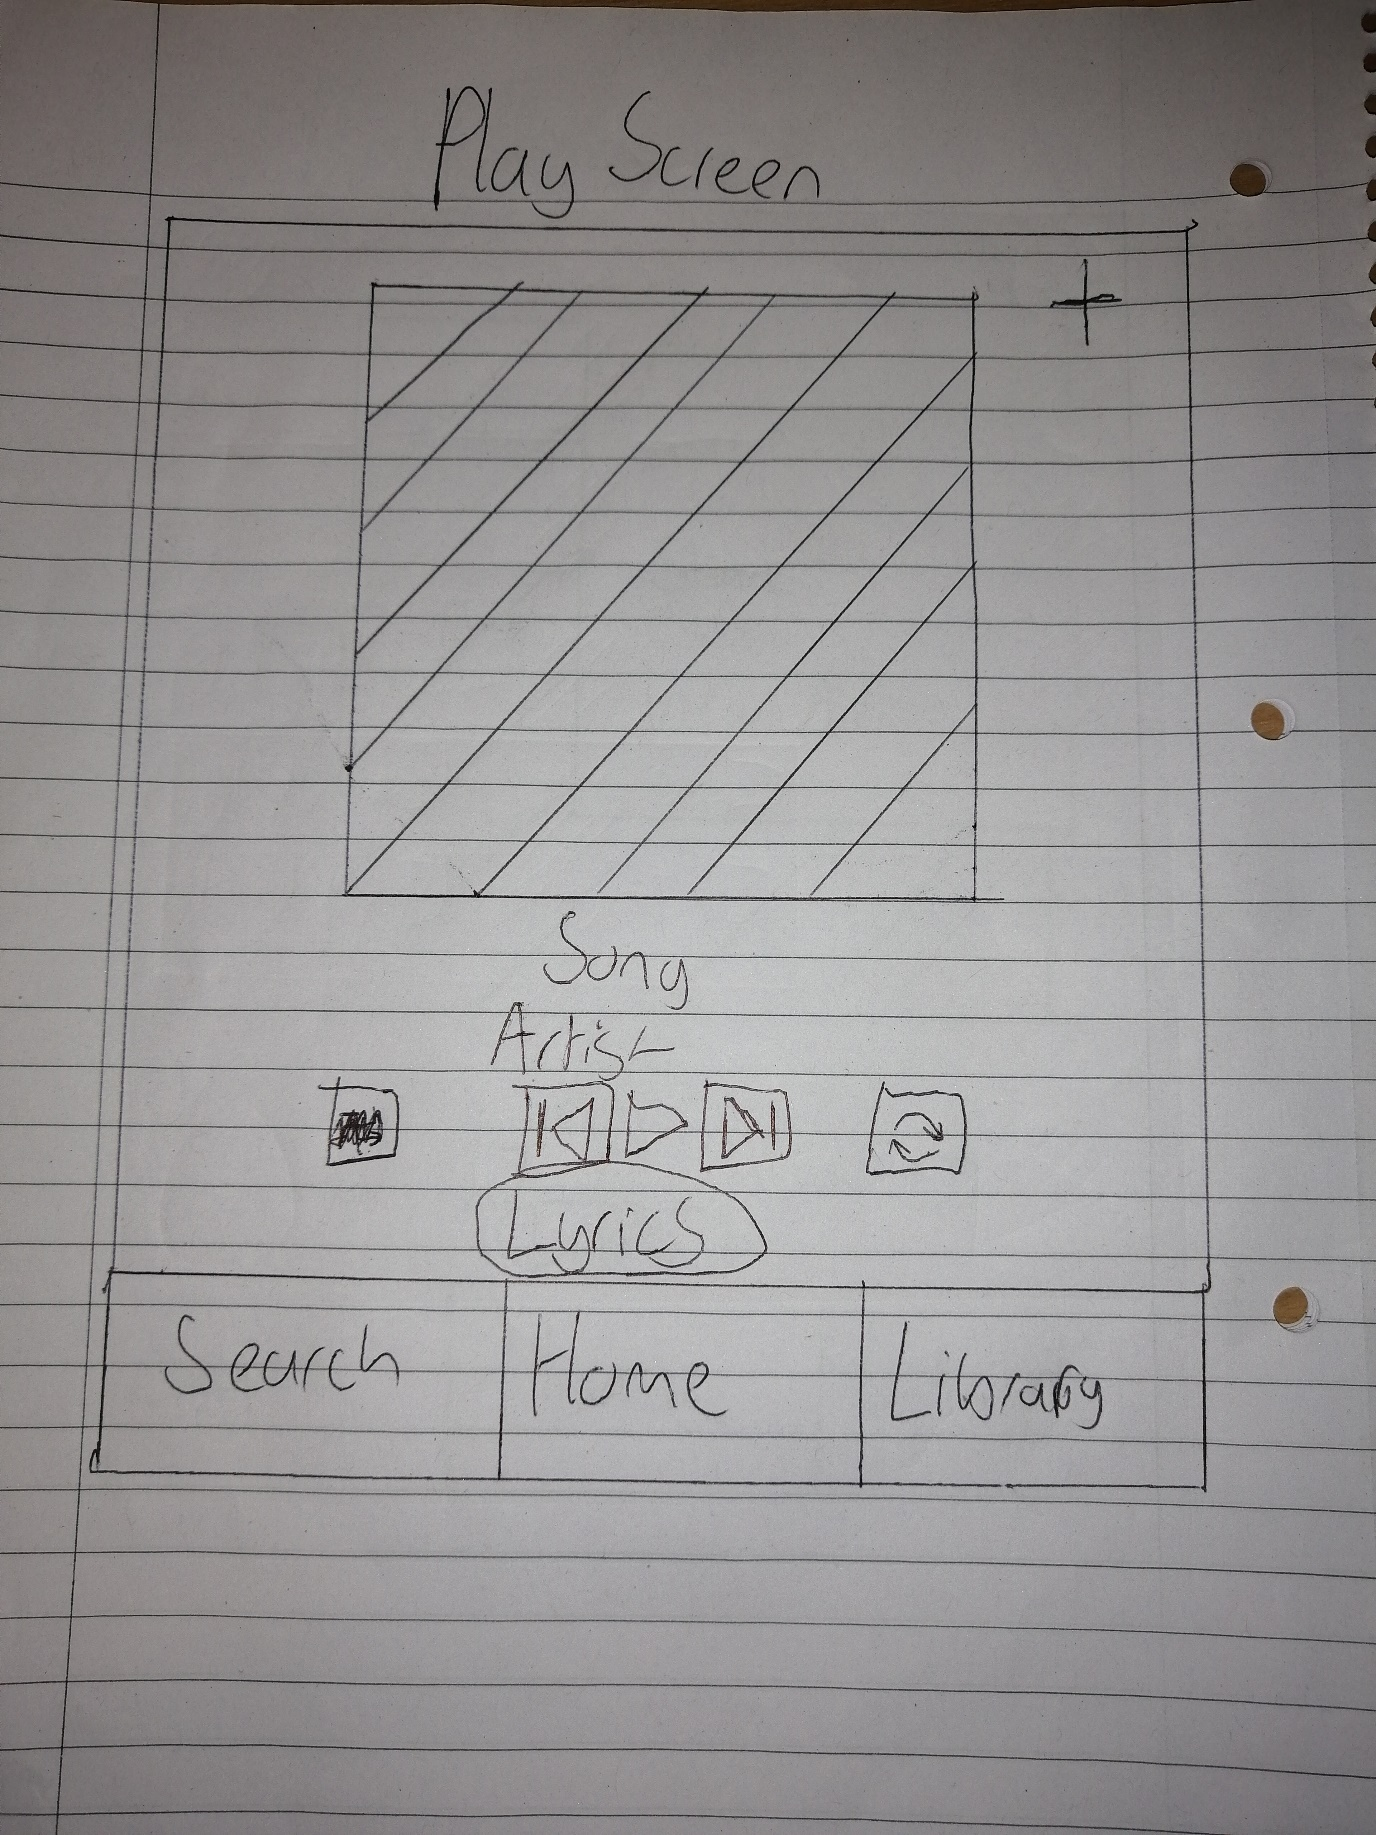 Play Screen
+
Song
Artist
Lyrics
Search Home Library